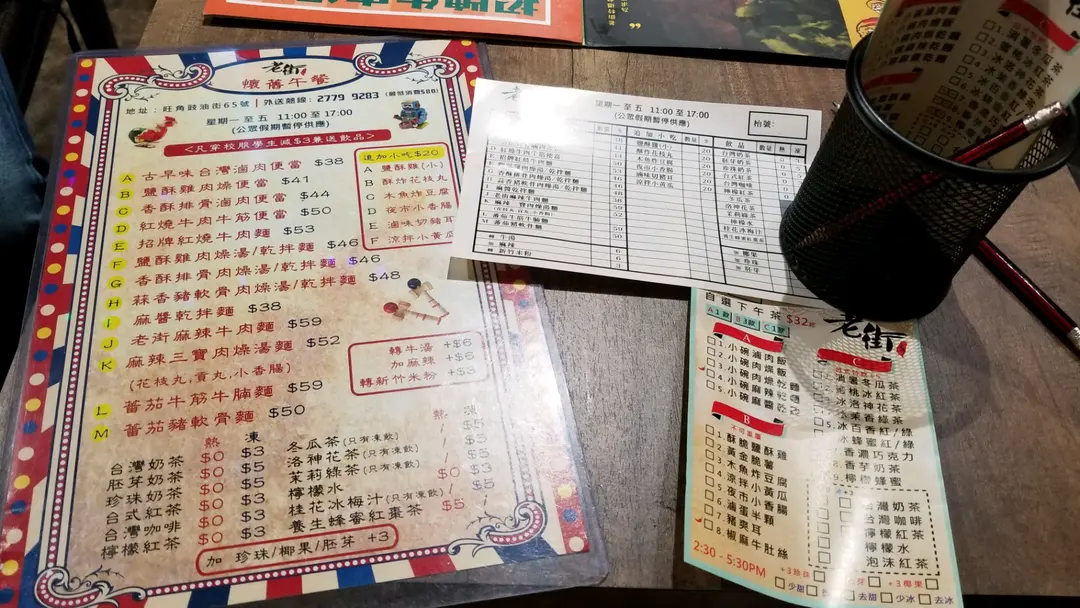 老街
懷舊午餐
地址：旺角豉油街65號 | 外送熱線：2779 9283
星期一 至 五 11:00 至 17:00
(公眾假期暫停供應)
<凡穿校服學生減$3兼送飲品>
A 古早味台灣滷肉便當 $38
B 鹽酥雞肉燥便當 $41
C 香酥排骨滷肉便當 $44
D 紅燒牛肉牛筋便當 $50
E 招牌紅燒牛肉麵 $53
F 鹽酥雞肉燥湯/乾拌麵 $46
G 香酥排骨肉燥湯/乾拌麵 $46
H 蒜香豬軟骨肉燥湯/乾拌麵 $48
I 麻醬乾拌麵 $38
J 老街麻辣牛肉麵 $59
K 麻辣三寶肉燥湯麵 $52
(花枝丸,貢丸,小香腸)
L 蕃茄牛筋牛腩麵 $59
M 蕃茄豬軟骨麵 $50
追加小吃$20
A 鹽酥雞(小)
B 酥炸花枝丸
C 木魚炸豆腐
D 夜市小香腸
E 滷味切豬耳
F 涼拌小黃瓜
轉牛湯 +$6
加麻辣 +$6
轉新竹米粉 +$3
熱 凍
台灣奶茶 $0 $3
胚芽奶茶 $0 $5
珍珠奶茶 $0 $5
台式紅茶 $0 $3
台灣咖啡 $0 $3
檸檬紅茶 $0 $3
熱 凍
冬瓜茶(只有凍飲) / $5
洛神花茶(只有凍飲) / $5
茉莉綠茶(只有凍飲) / $5
檸檬水 $0 $3
桂花冰梅汁(只有凍飲) /
養生蜂蜜紅棗茶 $5 /
加 珍珠/椰果/胚芽 +3
星期一 至 五 11:00 至 17:00
(公眾假期暫停供應)
枱號：
追加小吃 數量 $
鹽酥雞(小) 20
酥炸花枝丸 20
木魚炸豆腐 20
夜市小香腸 20
滷味切豬耳 20
涼拌小黃瓜 20
飲品 數量 熱 凍
台灣奶茶
胚芽奶茶
珍珠奶茶
台式紅茶
台灣咖啡
檸檬紅茶
冬瓜茶
洛神花茶
茉莉綠茶
檸檬水
桂花冰梅汁
養生蜂蜜紅棗茶
椰果
珍珠
胚芽
牛湯 6
麻辣 6
新竹米粉 3
自選下午茶 $32起
A1款 B3款 C1款
老街
A
1.小碗滷肉飯
2.小碗肉燥飯
3.小碗肉燥乾麵
4.小碗麻辣乾麵
5.小碗麻醬乾麵
B
不可重覆
1.酥脆鹽酥雞
2.黃金脆薯
3.木魚炸豆腐
4.涼拌小黃瓜
5.夜市小香腸
6.滷蛋半顆
7.豬爽耳
8.椒麻牛肚絲
2:30 - 5:30PM
C
消暑冬瓜茶
蜜桃冰紅茶
冰洛神花茶
茉香綠茶
5.冰百香紅/綠
冰蜂蜜紅/綠
香濃巧克力
8.香芋奶茶
9.檸檬蜂蜜
台灣奶茶
台灣咖啡
檸檬紅茶
檸檬水
泡沫紅茶
+3珍珠
+3椰果
少甜
去甜
少冰
去冰